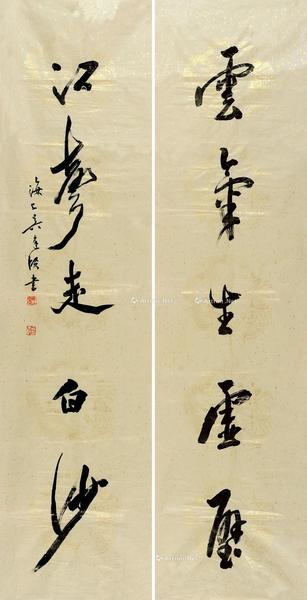 雲氣生虛壁
江聲走白沙
海上吳建賢書